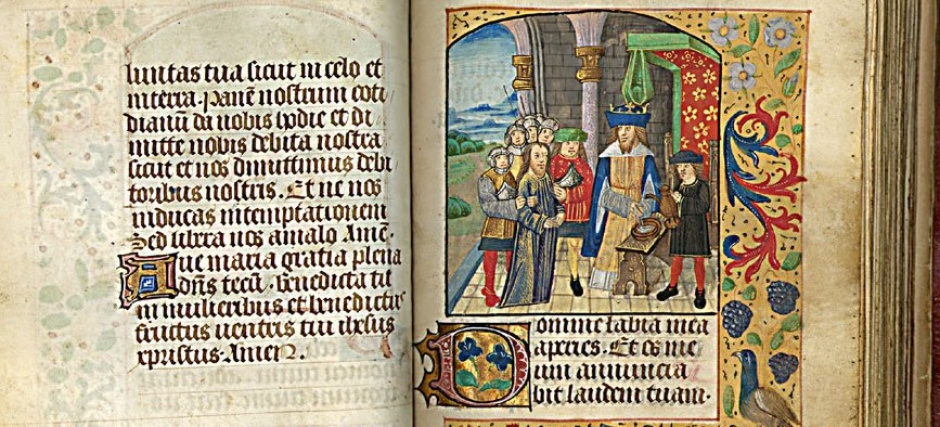 luntas tua sicut in celo et
in terra. Panē nostrum coti
dianū da nobis hodie et di
mitte nobis debita nostra
sicut et nos dimittimus debi
toribus nostris. Et ne nos
inducas in temptationem
Sed libera nos a malo Amē.
Aue maria gratia plena
dn̄s tecū. Benedicta tu
in mulieribus et benedictus
fructus uentris tui ihesus
xpristus. Amen.
Domine labia mea
aperies. Et os me
um annuncia
bit laudem tuam.